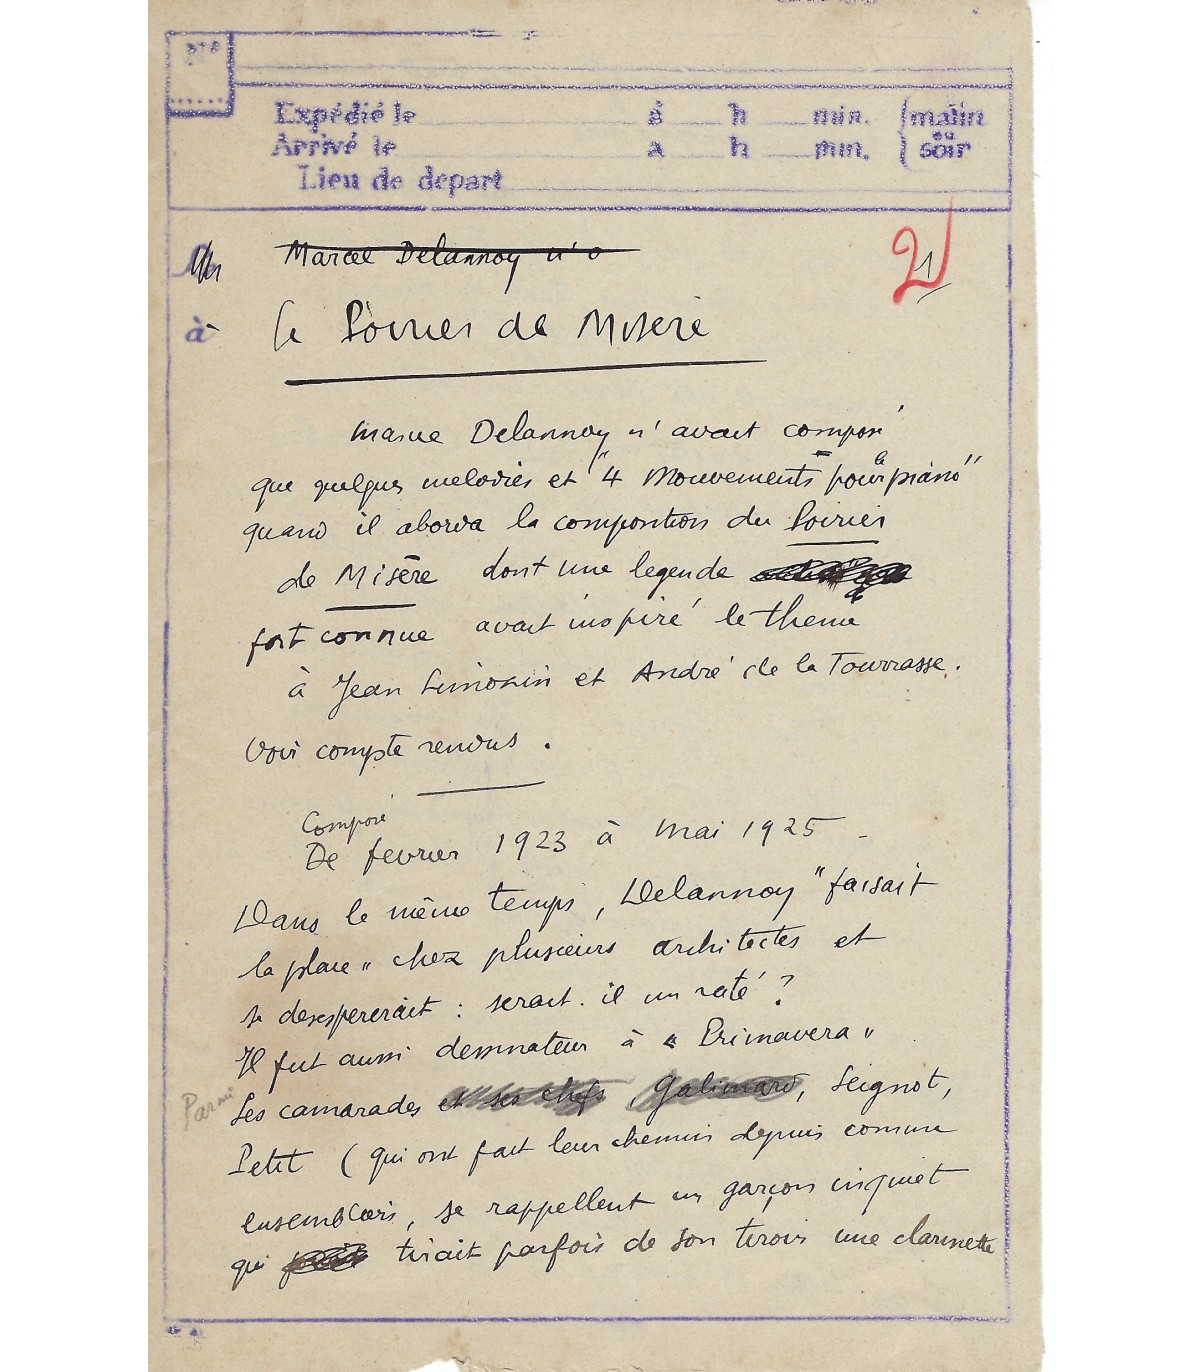 N°
Expédié le à h min. matin
ou
Arrivé le à h min. soir
Lieu de départ
21
Marcel Delannoy n'a
à
Le Poirier de Misère
Marcel Delannoy n'avait composé
que quelques mélodies et "4 Mouvements pour le piano"
quand il aborda la composition du Poirier
de Misère dont une légende
fort connue avait inspiré le thème
à Jean Limosin et André de la Tourrasse.
Voir compte rendus.
Composé
De fevrier 1923 à Mai 1925 -
Dans le même temps, Delannoy "faisait
la place" chez plusieurs architectes et
se desespererait : serait-il un raté ?
Il fut aussi dessinateur à "Primavera"
Parmi
Ses camarades et ses chefs, Galimard, Seignot,
Petit (qui ont fait leur chemin depuis comme
ensembliers, se rappellent un garçon inquiet
qui tirait parfois de son tiroir une clarinette